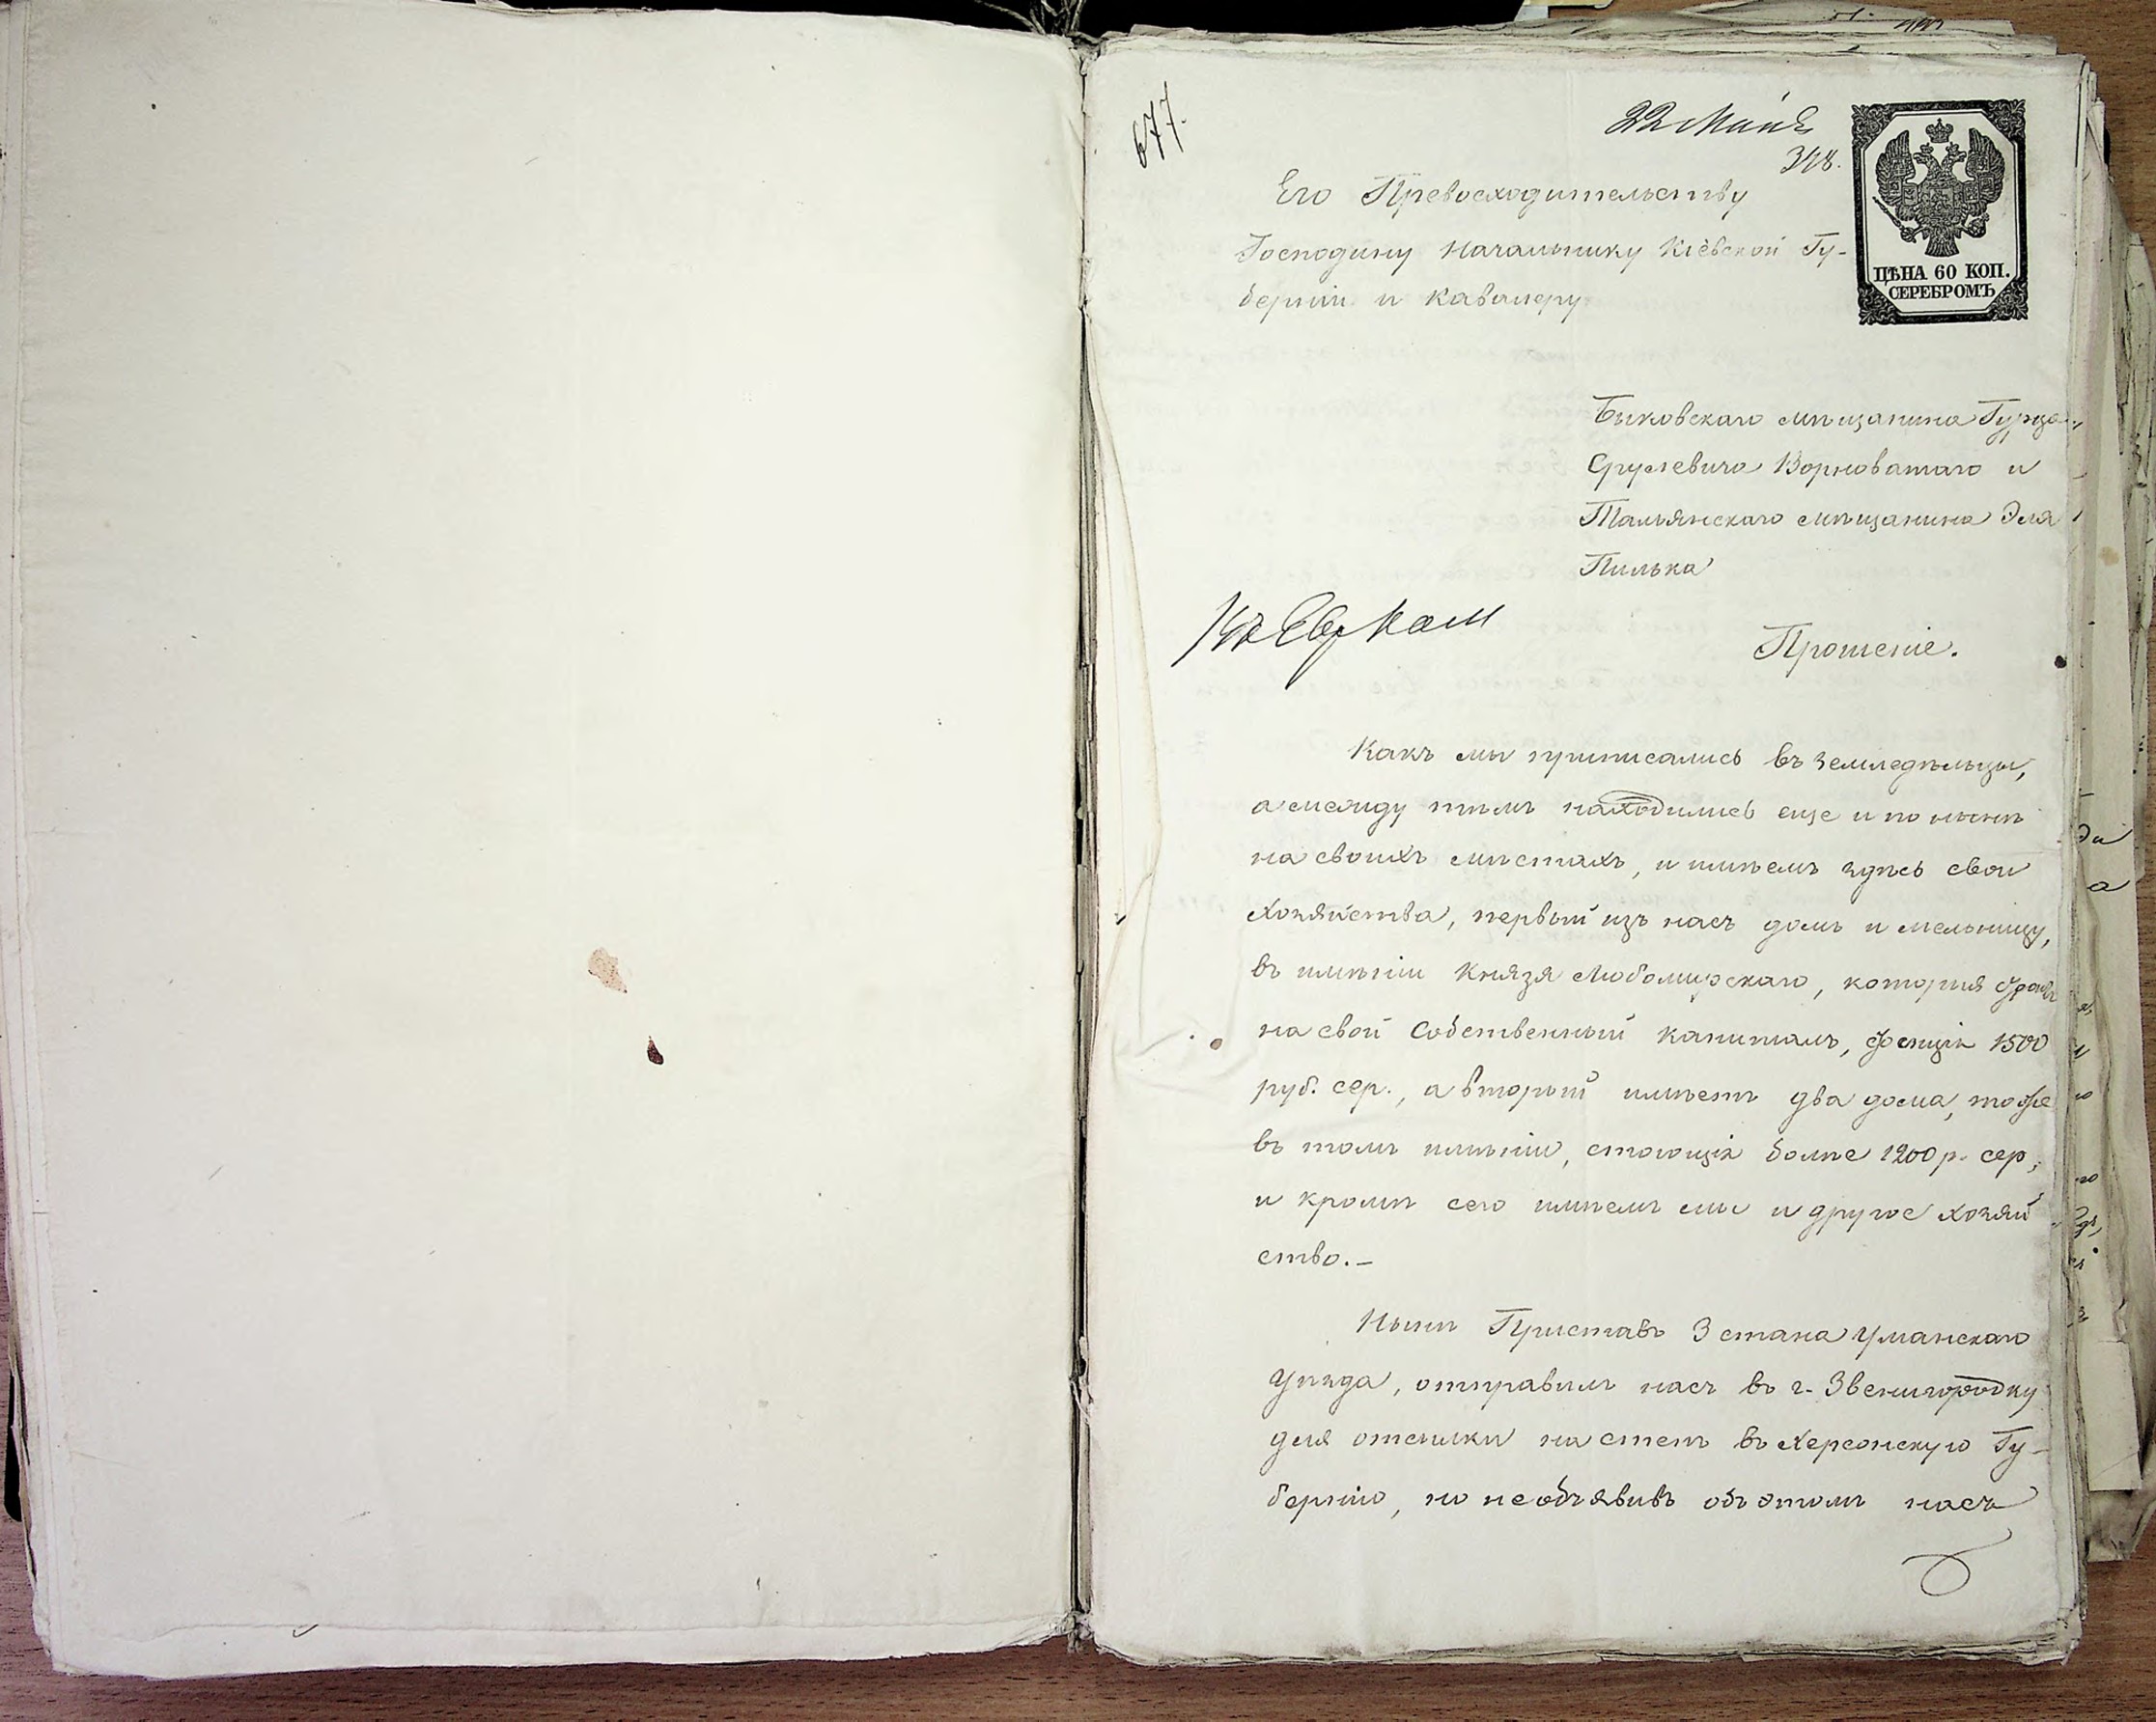 677.
22 Маія
348.
ЦѢНА 60 КОП.
СЕРЕБРОМЪ
Его Превосходительству
Господину Начальнику Кіевской Гу-
берніи и Кавалеру
мѣщанина
Срулевича Ворноватаго и
Тальянскаго мѣщанина Эля
Пилька
Прошеніе.
Какъ мы приписались въ Земледѣльцы,
а между тѣмъ находились еще и по нынѣ
на своихъ мѣстахъ, и имѣемъ здѣсь свои
хозяйства, первый изъ насъ домъ и мельницу,
въ имѣніи Князя Любомирскаго, которыя
на свой Собственный Капиталъ, 1500
руб. сер., а вторый имѣетъ два дома, тоже
въ томъ имѣніи, стоющія болѣе 1200 р. сер,
и кромѣ сего имѣемъ мы и другое хозяй
ство.-
Нынѣ Приставъ 3 стана Уманскаго
Уѣзда, отправилъ насъ въ г. Звенигородку
для отсылки на степь въ Херсонскую Гу-
бернію, но необъявивъ объ этомъ насъ